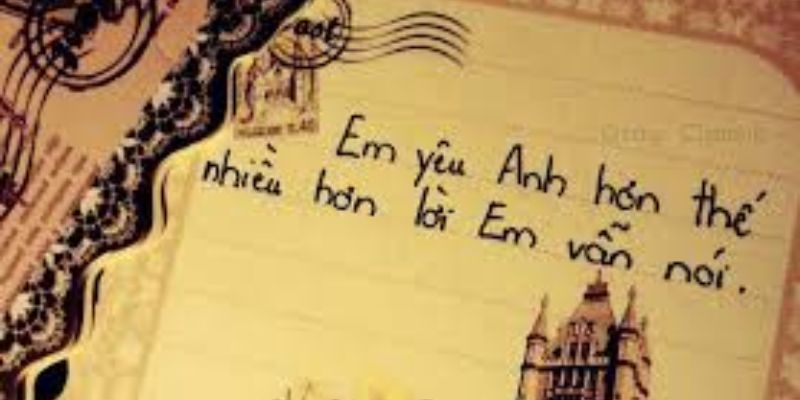 Em yêu Anh hơn thế
nhiều hơn lời Em vẫn nói.